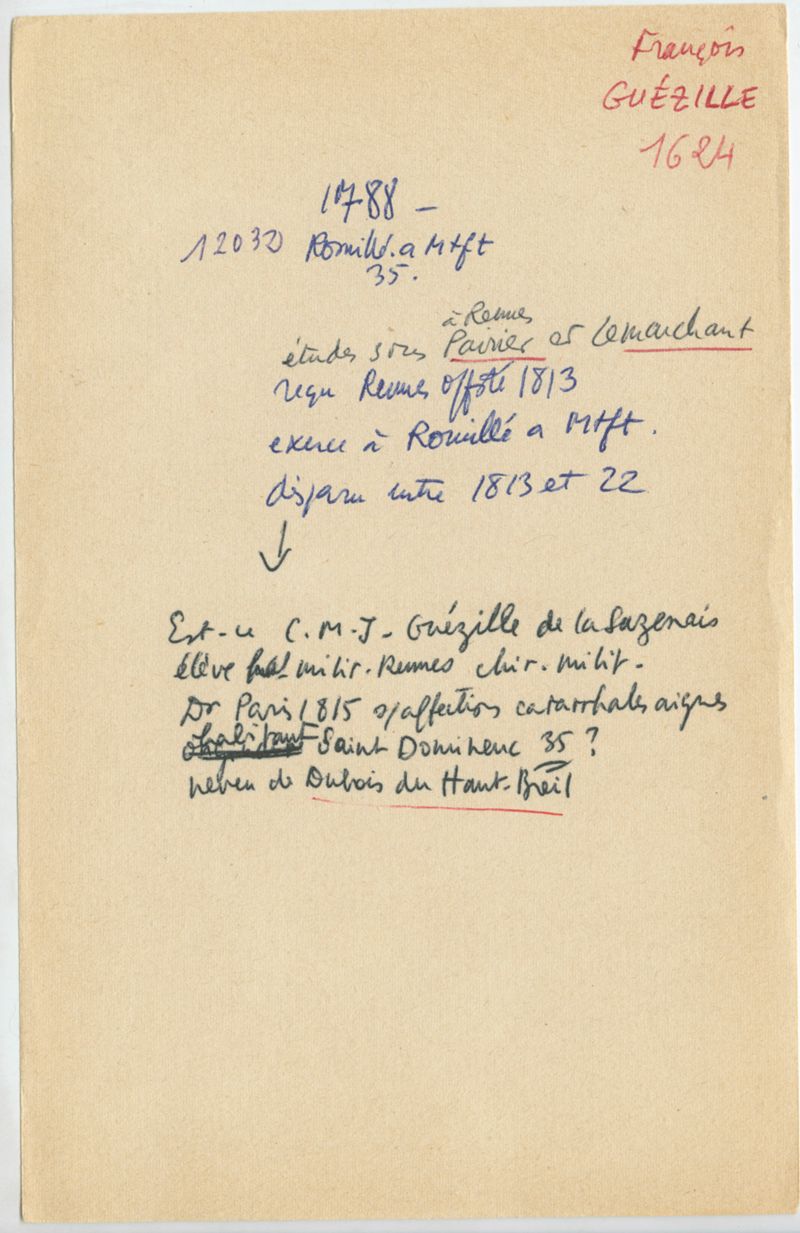 François
GUÉZILLE
1624
1788 –
12032 Romillé. a Mtft
35.
à Rennes
études sous Poirier et Lemarchant
reçu Rennes offsté 1813
exerce à Romillé a Mtft.
disparu entre 1813 et 22
Est-ce C.M.J. Guézille de la Sazenais
élève hal milit. Rennes chir. milit.
Dr Paris 1815 s/affections catarrhales aigues
habitant Saint Domineuc 35 ?
neveu de Dubois du Haut-Breil